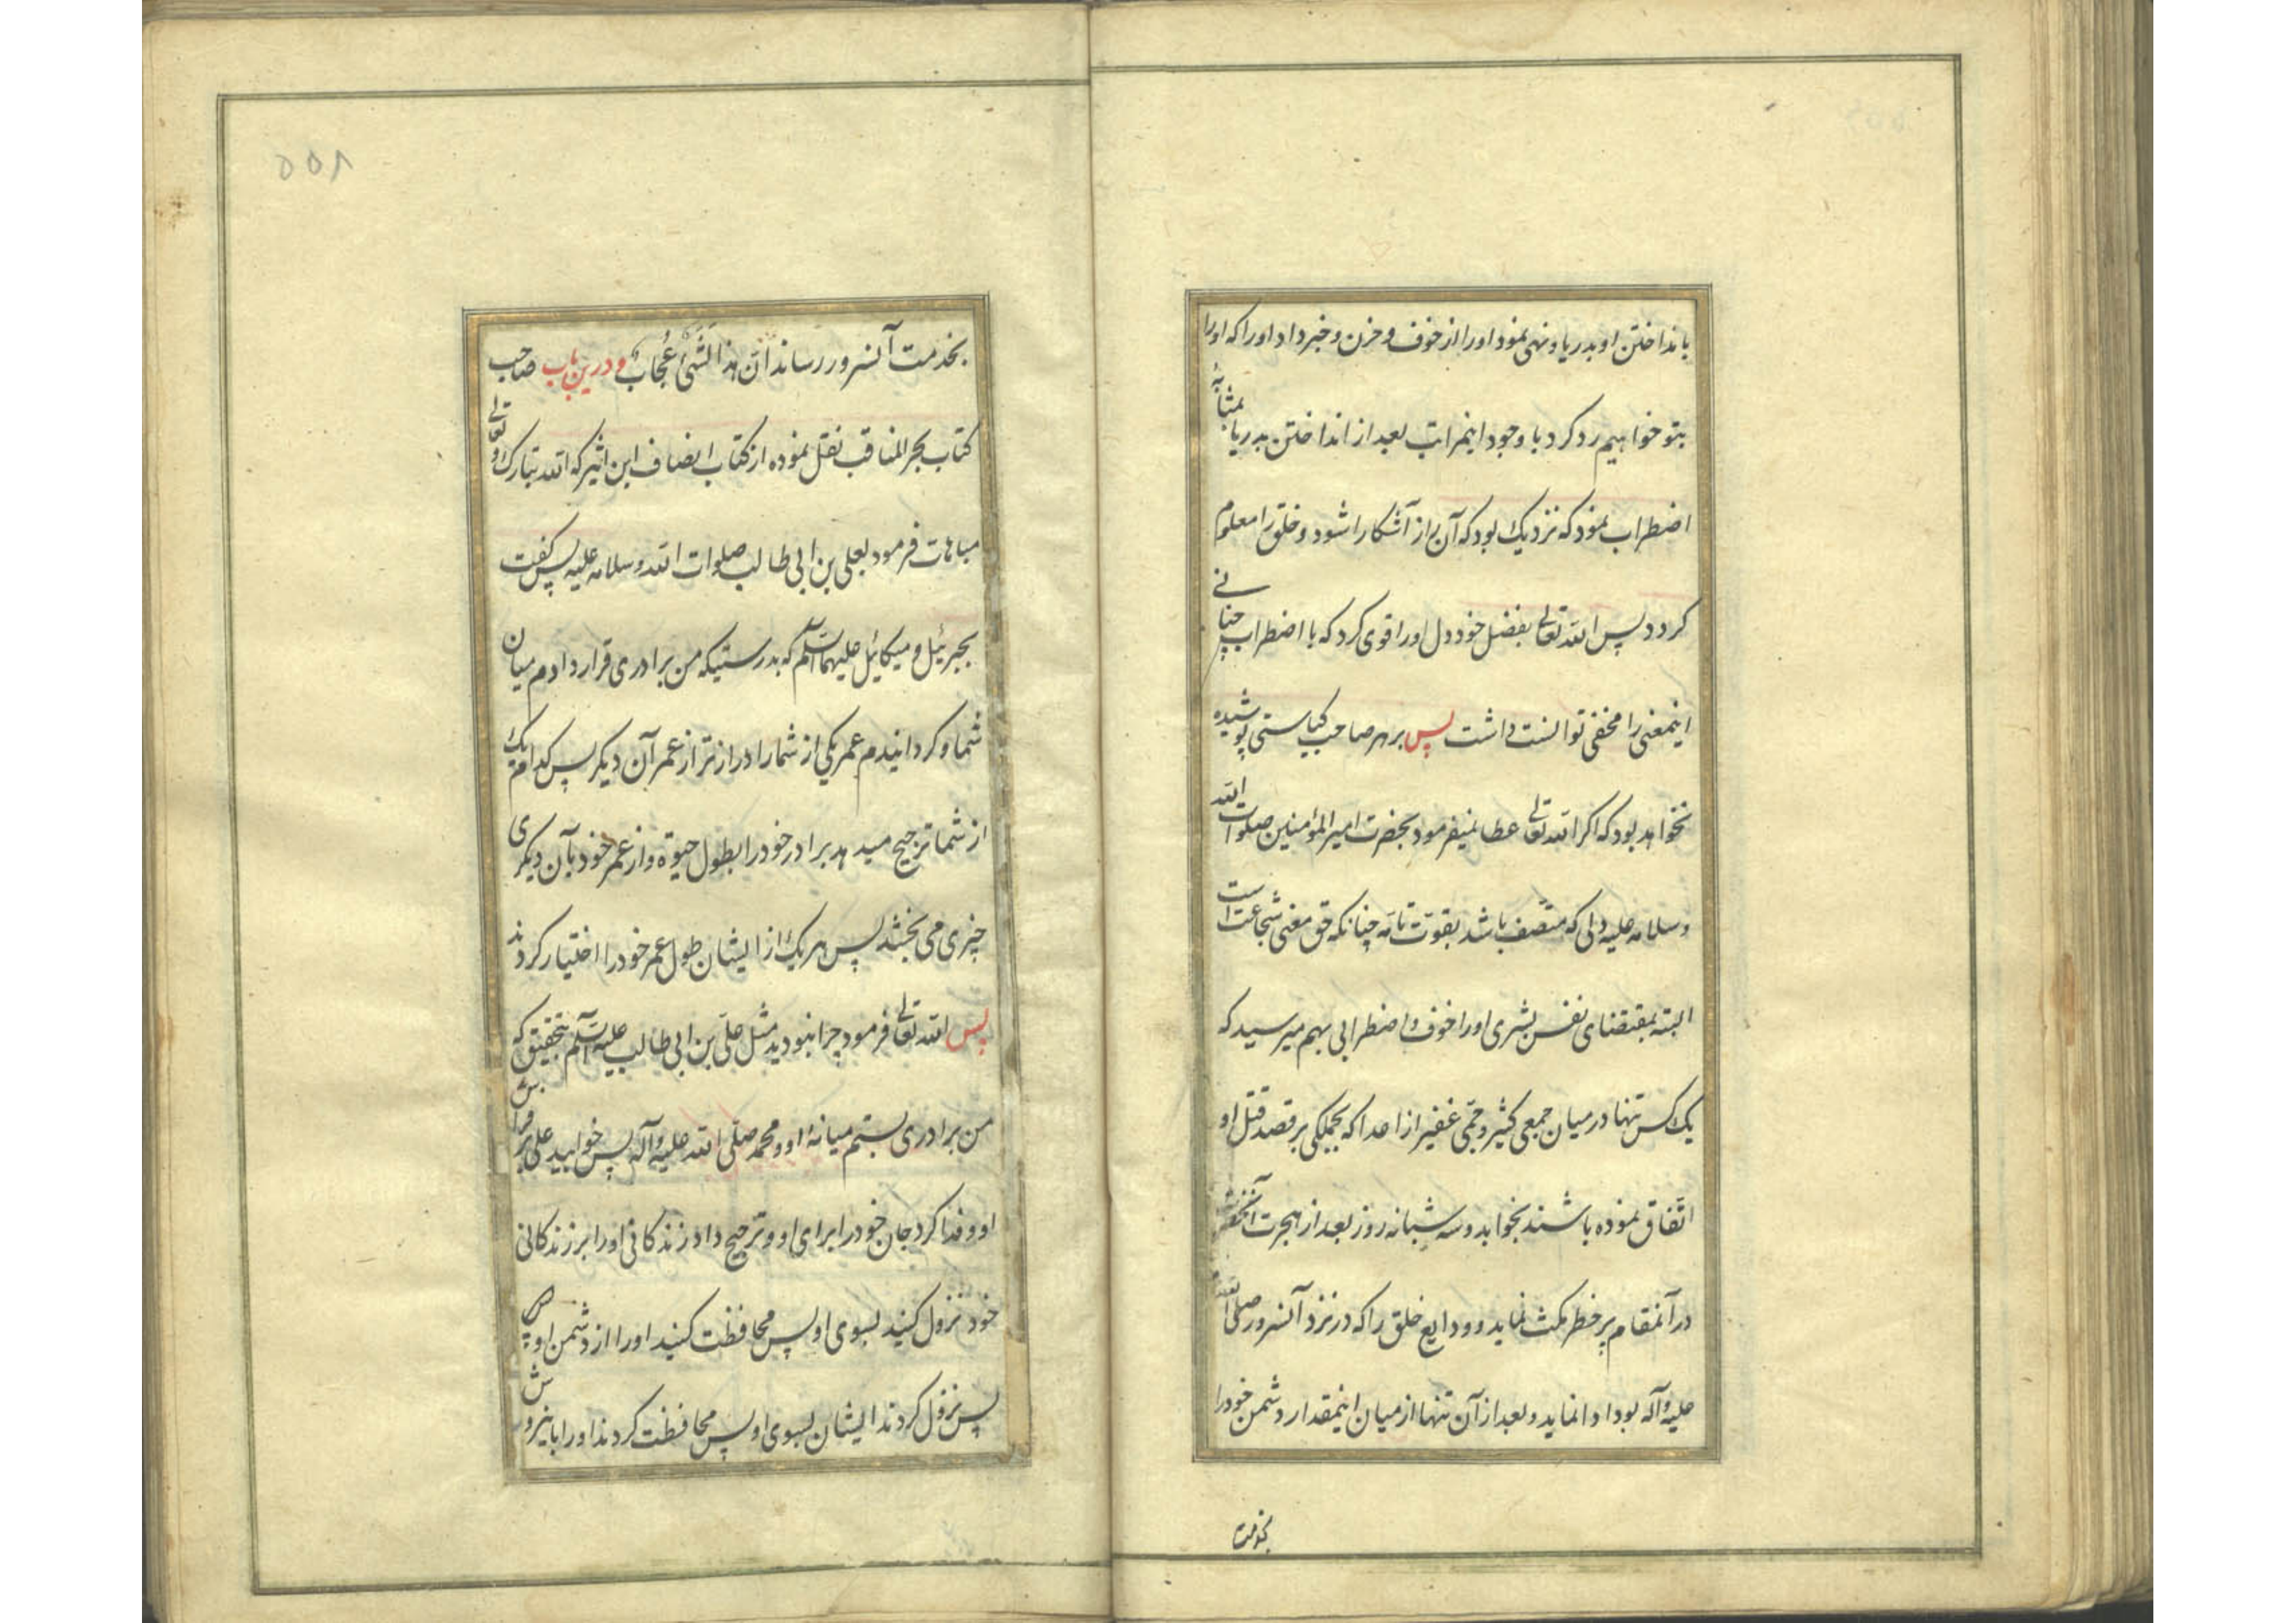 بانداختن او بدریا و نهی نمود او را از خوف و حزن و خبر داد او را که او را
بتو خواهیم رد کرد با وجود اینمراتب بعد از انداختن بدریا بمثابهٔ
اضطراب نمود که نزدیک بود که آن راز آشکارا شود و خلق را معلوم
کردد پس الله تعالی بفضل خود دل او را قوی کرد که با اضطراب چنانی
اینمعنی را مخفی توانست داشت پس بر هر صاحب کیاستی پوشیده
نخواهد بود که اکر الله تعالی عطا نمیفرمود بحضرت امیرالمؤمنین صلوات الله
وسلامه علیه دلی که متصف باشد بقوت تامه چنانکه حق معنی شجاعت است
البته بمقتضای نفس بشری او را خوف و اضطرابی بهم میرسید که
یک کس تنها در میان جمعی کثیر و جمی غفیر از اعدا که بجملکی بر قصد قتل او
اتفاق نموده باشند بخوابد و سه شبانه روز بعد از هجرت آنحضرت
در آنمقام پر خطر مکث نماید و ودایع خلق را که در نزد آنسرور صلی الله
علیه وآله بود ادا نماید و بعد از آن تنها از میان اینمقدار دشمن خود را
بخدمت
۵۵۸
بخدمت آنسرور رساند ان هذا لشیئ عجاب و درین باب صاحب
کتاب بحر المناقب نقل نموده از کتاب انصاف ابن اثیر که الله تبارک و تعالی
مباهات فرمود بعلی بن ابی طالب صلوات الله وسلامه علیه پس کفت
بجبرئیل و میکائیل علیهما السلم که بدرستیکه من برادری قرار دادم میان
شما و کردانیدم عمر یکی از شما را درازتر از عمر آن دیکر پس کدام یک
از شما ترجیح میدهد برادر خود را بطول حیوة و از عمر خود بآن دیکری
چیزی می بخشد پس هر یک از ایشان طول عمر خود را اختیار کردند
پس الله تعالی فرمود چرا نبودید مثل علی بن ابی طالب علیه السلم بتحقیق که
من برادری بستم میانهٔ او و محمد صلی الله علیه وآله پس خوابید علی بر فراش
او و فدا کرد جان خود را برای او و ترجیح داد زندکانی او را بر زندکانی
خود نزول کنید بسوی او پس محافظت کنید او را از دشمن او پس
پس نزول کردند ایشان بسوی او پس محافظت کردند او را